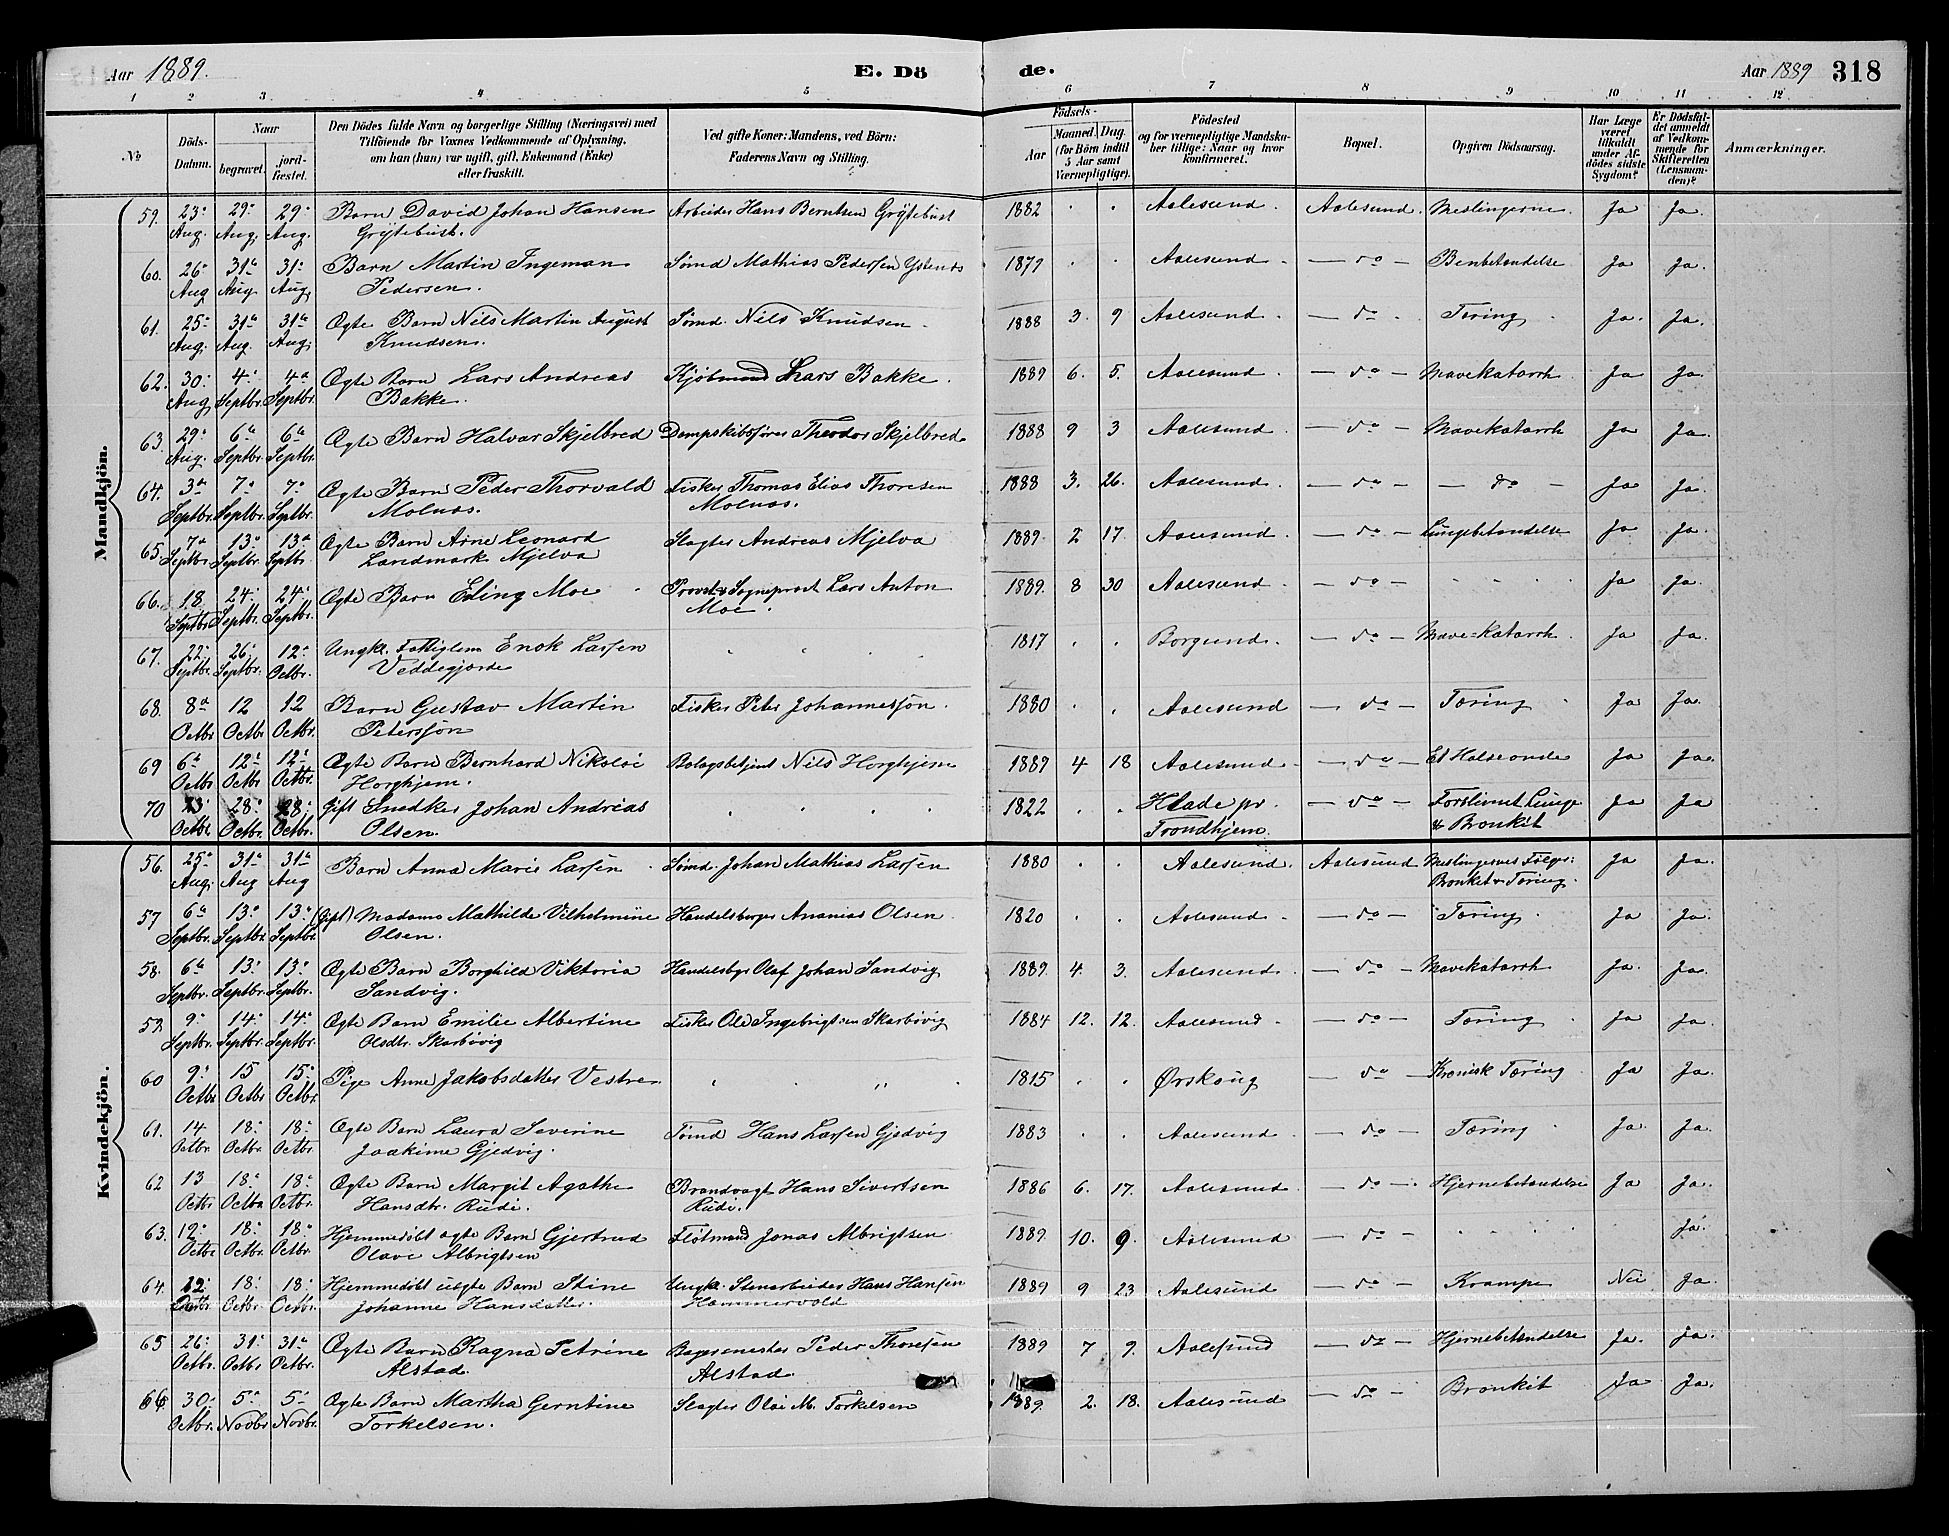 Aar 1889.
E. Döde.
Aar 1889 318
1 2 3 4 5 6 7 8 9 10 11 12
No
Döds-Datum.
Naar
begravet.
jordfæstet.
Den Dödes fulde Navn og borgerlige Stilling (Næringsvei) med
Tilföiende for Voxnes Vedkommende af Oplysning,
om han (hun) var ugift, gift, Enkemand (Enke)
eller fraskilt.
Ved gifte Koner: Mandens, ved Börn:
Faderens Navn og Stilling.
Födsels-
Aar
Maaned. Dag.
(for Börn indtil
5 Aar samt
Værnepligtige).
Födested
og for værnepligtige Mandskaber tillige: Naar og hvor
konfirmeret.
Bopæl.
Opgiven Dödsaarsag.
Har Læge
været
tilkaldt
under Afdödes sidste
Sygdom?
Er Dödsfaldet anmeldt
af Vedkommende for
Skifteretten
(Lensmanden)?
Anmærkninger.
Mandkjön.
59. 23. Aug. 29. Aug. 29. Aug. Barn David Johan Hansen Grÿtebust. Arbeider Hans Berntsen Grÿtebust 1882 Aalesund. Aalesund. Meslingerne. Ja Ja.
60. 26. Aug 31te Aug 31. Aug. Barn Martin Ingeman Pedersen. Sømd Mathias Pedersen 1879 Aalesund - do - Benbetændelse Ja Ja.
61. 25. Aug. 31te Aug. 31te Aug. Ægte Barn Nils Martin August Knudsen. Sømd. Nils Knudsen 1888 3. 9 Aalesund - do - Tæring Ja. Ja.
62. 30. Aug 4. Septbr. 4de Septbr. Ægte Barn Lars Andreas Bakke. Kjøbmand Lars Bakke. 1889 6. 5. Aalesund. - do - Mavekatarrh Ja Ja.
63. 29. Aug. 6te Septbr. 6te Septbr. Ægte Barn Halvar Skjelbred Dampskibsfører Theodor Skjelbred. 1888 9 3 Aalesund. - do - Mavekatarrh Ja Ja.
64. 3de Septbr. 7. Septbr. 7. Septbr. Ægte Barn Peder Thorvald Molnæs. Fisker Thomas Elias Thoresen Molnæs. 1888 3. 26. Aalesund. - do - - do - Ja Ja.
65. 7de Septbr. 13. Septbr. 13de Septbr. Ægte Barn Arne Leonard Landmark Mjelva Slagter Andreas Mjelva 1889 2 17. Aalesund. - do - Lungebetændelse Ja Ja.
66. 18. Septbr. 24. Septbr. 24. Septbr. Ægte Barn Erling Moe Provst & Sogneprest Lars Anton Moe. 1889. 8 30 Aalesund - do - Ja Ja.
67. 22. Septbr. 26. Septbr. 12. Octbr. Ungk. Fattiglem Enok Larsen Veddegjerde 1817 Borgund. - do - Mave-Katarrh. Ja Ja.
68. 8de Octbr 12 Octbr 12 Octbr. Barn Gustav Martin Petersson Fisker Peter Johannesson. 1880 Aalesund - do - Tæring Ja Ja.
69 6te Octbr 12. Octbr 12. Octbr. Ægte Barn Bernhard Nikolai Horghjem. Bolagsbetjent Nils Horghjem 1889 4 18 Aalesund - do - Et Halsonde Ja Ja
70 23. Octbr. 28. Octbr. 28. Octbr. Gift Snedker Johan Andreas Olsen. 1822 Hlade pr. Trondhjem. - do - Forslimet Lunge & Bronkit Ja Ja
Kvindekjön.
56. 25. Aug. 31te Aug 31te Aug Barn Anna Marie Larsen Sømd. Johan Mathias Larsen 1880 Aalesund. Aalesund Meslingernes Følger: Bronkit & Tæring. Ja Ja.
57 6te Septbr. 13. Septbr 13. Septbr (Gift) Madame Mathilde Vilhelmine Olsen. Handelsborger Ananias Olsen 1820 Aalesund - do - Tæring. Ja Ja.
58. 6te Septbr. 13. Septbr. 13. Septbr. Ægte Barn Borghild Viktoria Sandvig. Handelsbgr Olaf Johan Sandvig 1889 4. 3. Aalesund - do - Mavekatarrh Ja. Ja.
59. 9. Septbr. 14. Septbr. 14. Septbr. Ægte Barn Emilie Albertine Olsdtr. Skarbövig Fisker Ole Ingebrigtsen Skarbövig 1884 12. 12. Aalesund - do - Tæring Ja Ja.
60 9. Octbr 15 Octbr 15. Octbr. Pige Anne Jakobsdatter Vestre 1815 Ørskoug - do - Kronisk Tæring Ja Ja.
61. 14 Octbr. 18. Octbr. 18. Octbr. Ægte Barn Laura Severine Joakime Gjedvig. Sømd Hans Larsen Gjedvig 1883 Aalesund - do - Tæring Ja. Ja.
62 13 Octbr 18. Octbr 18. Octbr. Ægte Barn Margit Agathe Hansdtr. Rude. Brandvagt Hans Sivertsen Rude. 1886 6. 17. Aalesund - do - Hjernebetændelse Ja Ja.
63. 12. Octbr 18. Octbr. 18. Octbr. Hjemmedøbt ægte Barn Gjertrud Olave Albrigtsen Fløtmand Jonas Albrigtsen 1889. 10. 9. Aalesund - do - Ja.
64. 12. Octbr. 18. Octbr. 18. Octbr. Hjemmedøbt uægte Barn Stine Johanne Hansdatter. Ungk. Stenarbeider Hans Hansen Hammervold 1889 9 23 Aalesund - do - Krampe Nei Ja.
65 26. Octbr. 31. Octbr 31te Octbr. Ægte Barn Ragna Petrine Alstad. Bagermester Peder Thoresen Alstad. 1889 7 9. Aalesund - do - Hjernebetændelse Ja. Ja.
66. 30. Octbr. 5. Novbr 5. Novbr. Ægte Barn Martha Gerntine Torkelsen. Slagter Olai M. Torkelsen 1889. 2. 18. Aalesund - do - Bronkit Ja Ja.